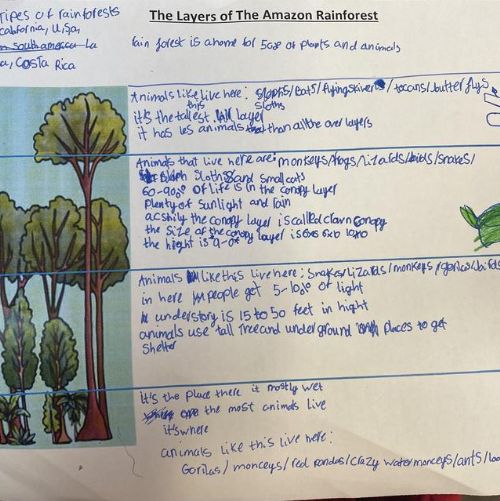 Types of rainforests
The Layers of The Amazon Rainforest
california, U,Sa,
south america La
a, Costa Rica
rain forest is a home for 50% of plants and animals
Animals like live here: sloths/bats/flying /tocans/butterflys
this sloths
it's the tallest layer
it has les animals than all the over layers
Animals that live here are: monkeys/frogs/lizards/birds/snakes/
sloths and small cats
60-90% of life is in the canopy layer
plenty of sunlight and rain
acshily the canopy layer is called canopy
the size of the canopy layer is
the hight is
Animals like this live here: snakes/lizards/monkeys/gorilas/birds
in here people get 5-10% of light
understory is 15 to 50 feet in hight
animals use tall tree and under ground places to get
shelter
it's the place there it mostly wet
the most animals live
it's where
animals like this live here:
Gorilas/monceys/red pandas/crazy water monceys/ants/